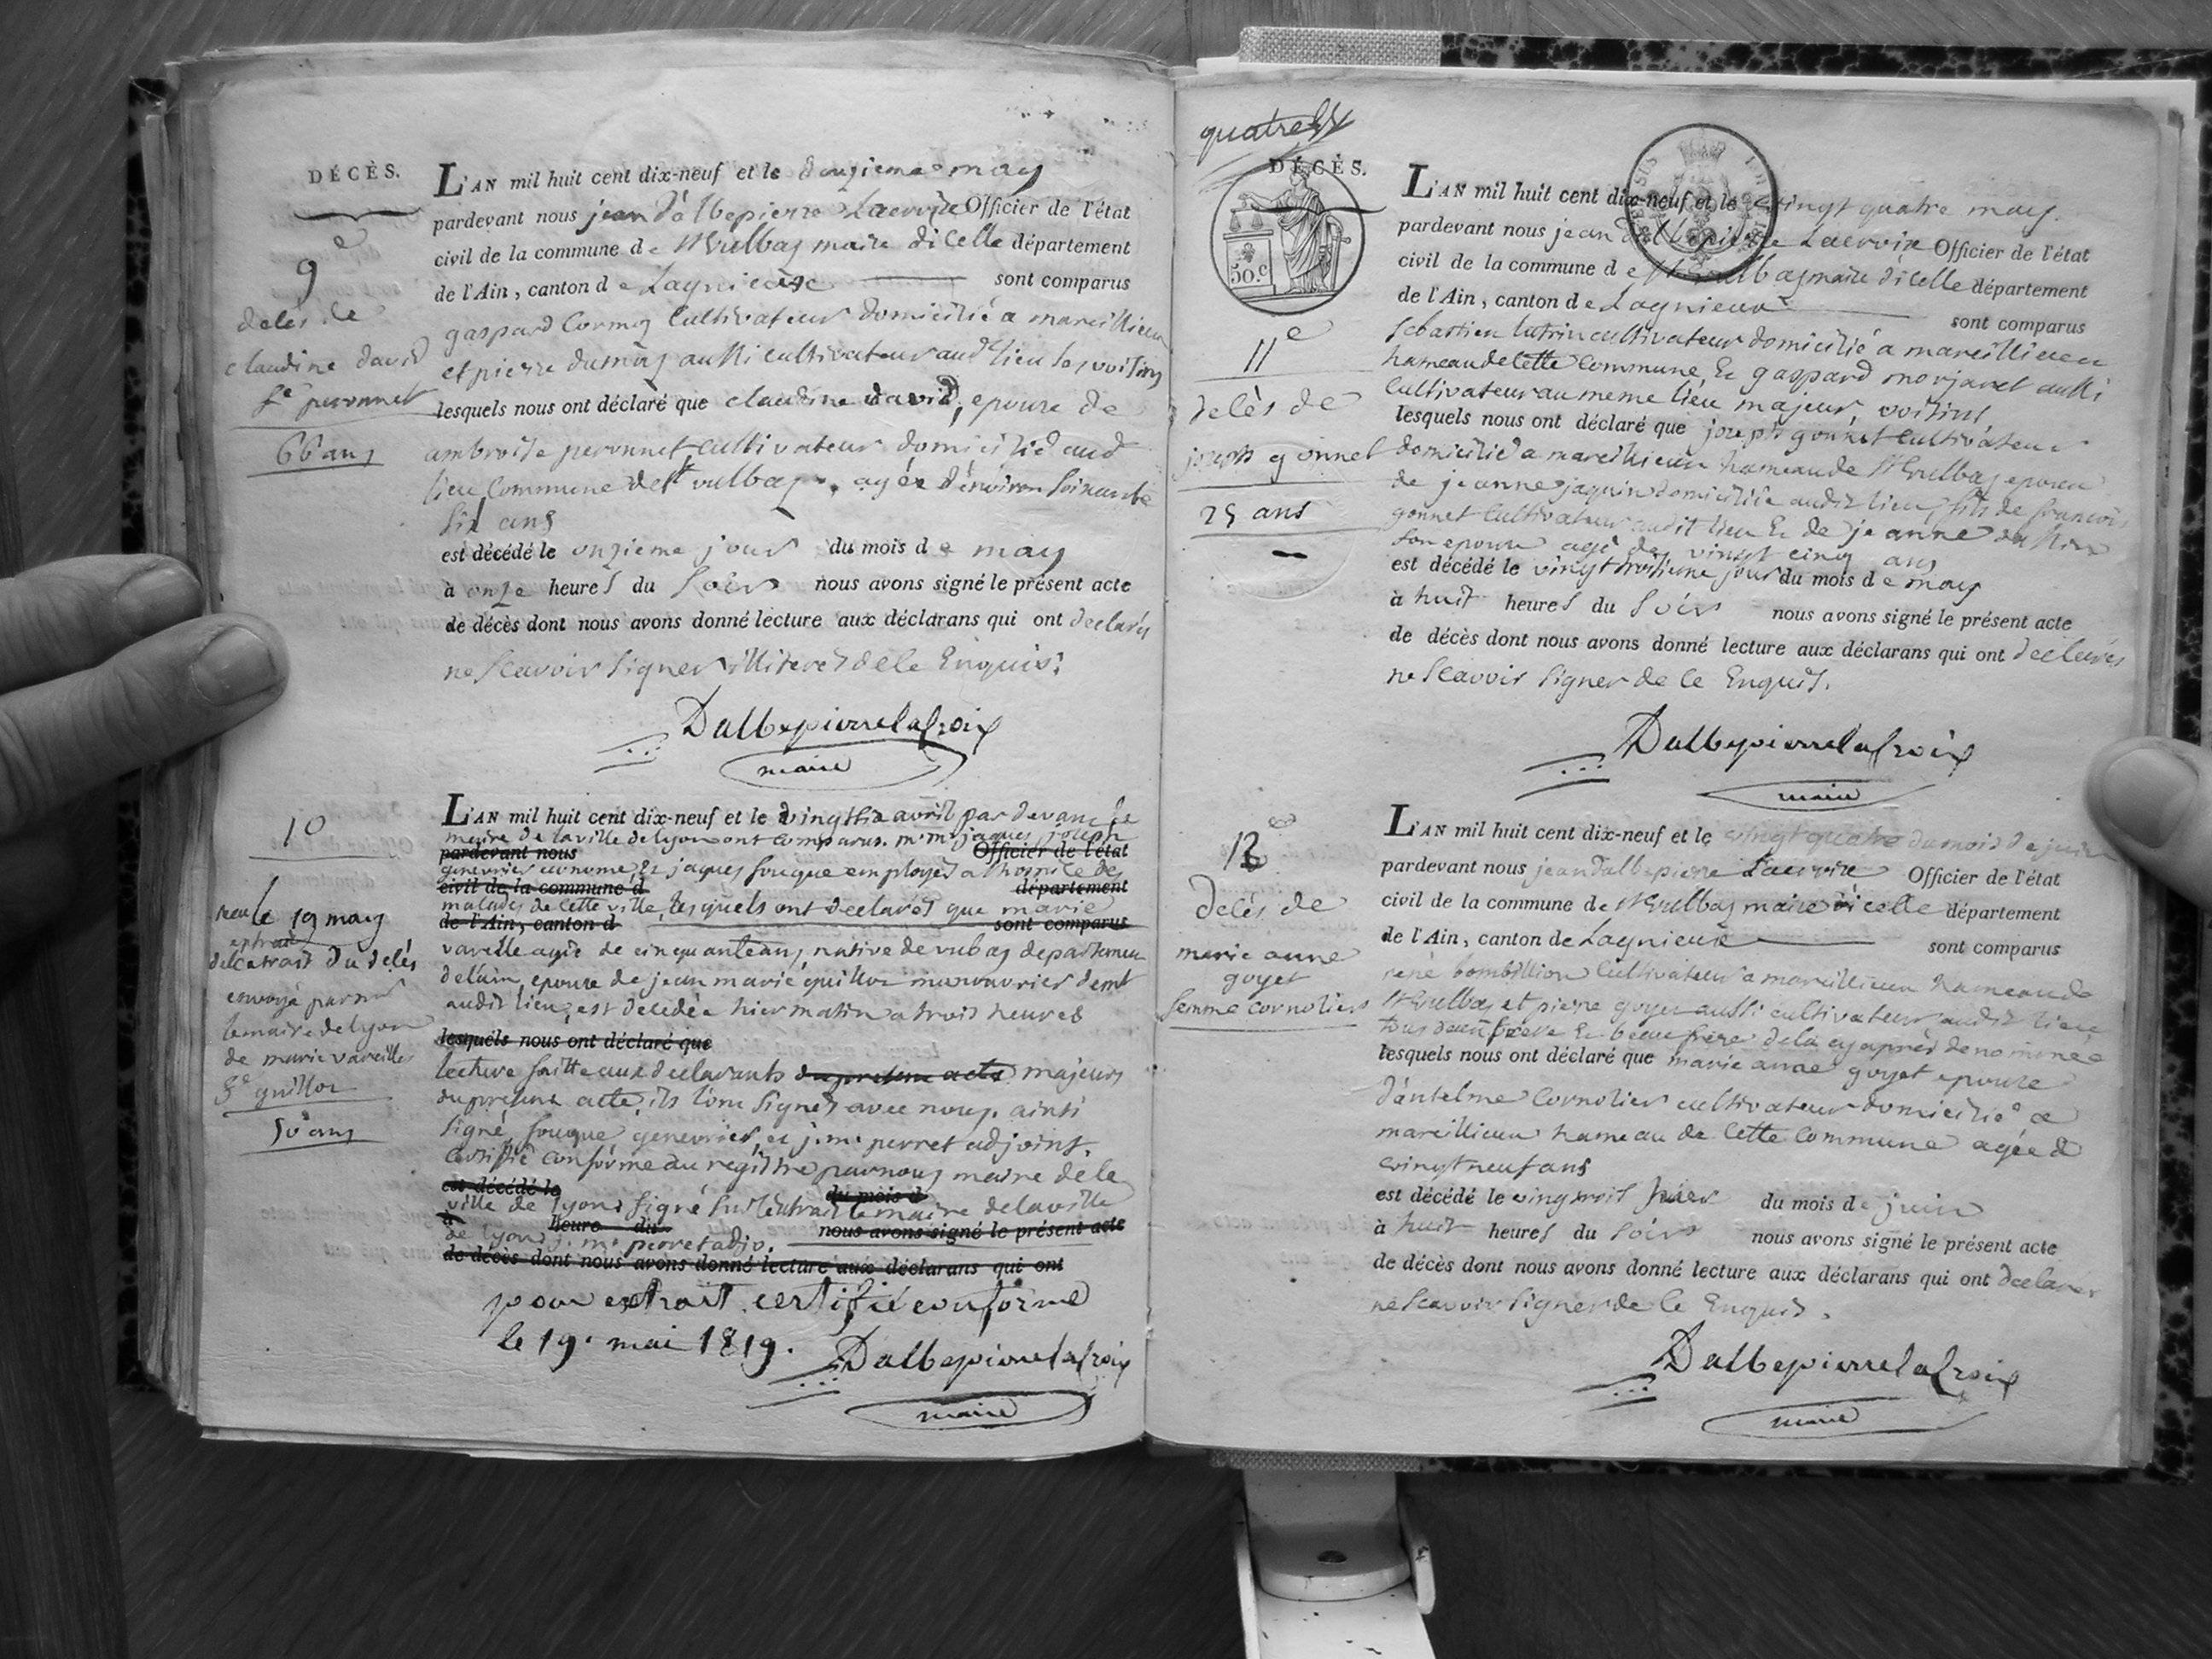 DÉCÈS.
9e
delès de
claudine david
fe peronnet
66 ans
L'AN mil huit cent dix-neuf et le douzieme may
pardevant nous jean d'albepierre Lacroix Officier de l'état
civil de la commune de St Vulbas maire dicelle département
de l'Ain, canton de Lagnieux sont comparus
gaspard Cormoz Cultivateur domicilié a marcillieux
et pierre dumas aussi cultivateur aud lieu ses voisins
lesquels nous ont déclaré que claudine david, epouse de
ambroise peronnet Cultivateur domicilié aud
lieu Commune de St vulbas, agée d'environ soixante
six ans
est décédé le onzieme jour du mois de may
à onze heures du soir nous avons signé le présent acte
de décès dont nous avons donné lecture aux déclarans qui ont declarés
ne scavoir signer illiterés de ce Enquis.
Dalbepierrelacroix
maire
10
reçu le 19 may
extrait du delès
envoyé par mr
le maire de lyon
de marie vareille
fe guillot
50 ans
L'AN mil huit cent dix-neuf et le vingt six avril par devant le
maire de la ville de lyon ont comparus. mr mr jaques joseph
pardevant nous Officier de l'état
genevrier econome, et jaques fouque employés a l'hospice des
civil de la commune d département
malades de cette ville, lesquels ont declarés que marie
de l'Ain, canton d sont comparus
vareille agée de cinquante ans, native de vulbas departement
de l'ain, epouse de jean marie guillot manouvrier demt
audit lieu, est decedée hier matin a trois heures
lesquels nous ont déclaré que
lecture faitte aux declarants du present acte majeurs
du present acte, ils l'ont signés avec nous. ainsi
signé, fouque, genevrier, et j. m. perret adjoint.
Certifié conforme au registre par nous maire de la
est décédé le du mois d
ville de lyon signé sur l'extrait le maire de la ville
à heure du nous avons signé le présent acte
de lyon j. m. perret adjo.
de décès dont nous avons donné lecture aux déclarans qui ont
pour extrait certifié conforme
le 19. mai 1819.
Dalbepierrelacroix
maire
quatre
DÉCÈS.
50.c
11e
delès de
joseph gonnet
25 ans
L'AN mil huit cent dix-neuf et le vingt quatre may
pardevant nous jean dalbepierre Lacroix Officier de l'état
civil de la commune de St Vulbas maire dicelle département
de l'Ain, canton de Lagnieux sont comparus
sebastien lutrin cultivateur domicilié a marcillieux
hameau de cette Commune, Et gaspard morjaret aussi
Cultivateur au meme lieu majeur, voisins
lesquels nous ont déclaré que joseph gonnet Cultivateur
domicilié a marcillieux hameau de St Vulbas epoux
de jeanne jaquin domiciliée audit lieu, fils de francois
gonnet Cultivateur audit lieu Et de jeanne
son epouse agé de vingt cinq ans
est décédé le vingt troisieme jour du mois de may
à huit heures du soir nous avons signé le présent acte
de décès dont nous avons donné lecture aux déclarans qui ont declarés
ne scavoir signer de ce Enquis.
Dalbepierrelacroix
maire
12e
delès de
marie anne
goyet
femme cornolier
L'AN mil huit cent dix-neuf et le vingt quatre du mois de juin
pardevant nous jean dalbepierre Lacroix Officier de l'état
civil de la commune de St Vulbas maire dicelle département
de l'Ain, canton de Lagnieux sont comparus
rené bombillion Cultivateur a marcillieux hameau de
St Vulbas et pierre goyet aussi cultivateur audit lieu
tous deux frere Et beau frere de la cy après denommée
lesquels nous ont déclaré que marie anne goyet epouse
d'antelme Cornolier cultivateur domicilié a
marcillieux hameau de cette Commune agée de
vingt neuf ans
est décédé le vingt trois du mois de juin
à huit heures du soir nous avons signé le présent acte
de décès dont nous avons donné lecture aux déclarans qui ont declarer
ne scavoir signer de ce Enquis.
Dalbepierrelacroix
maire